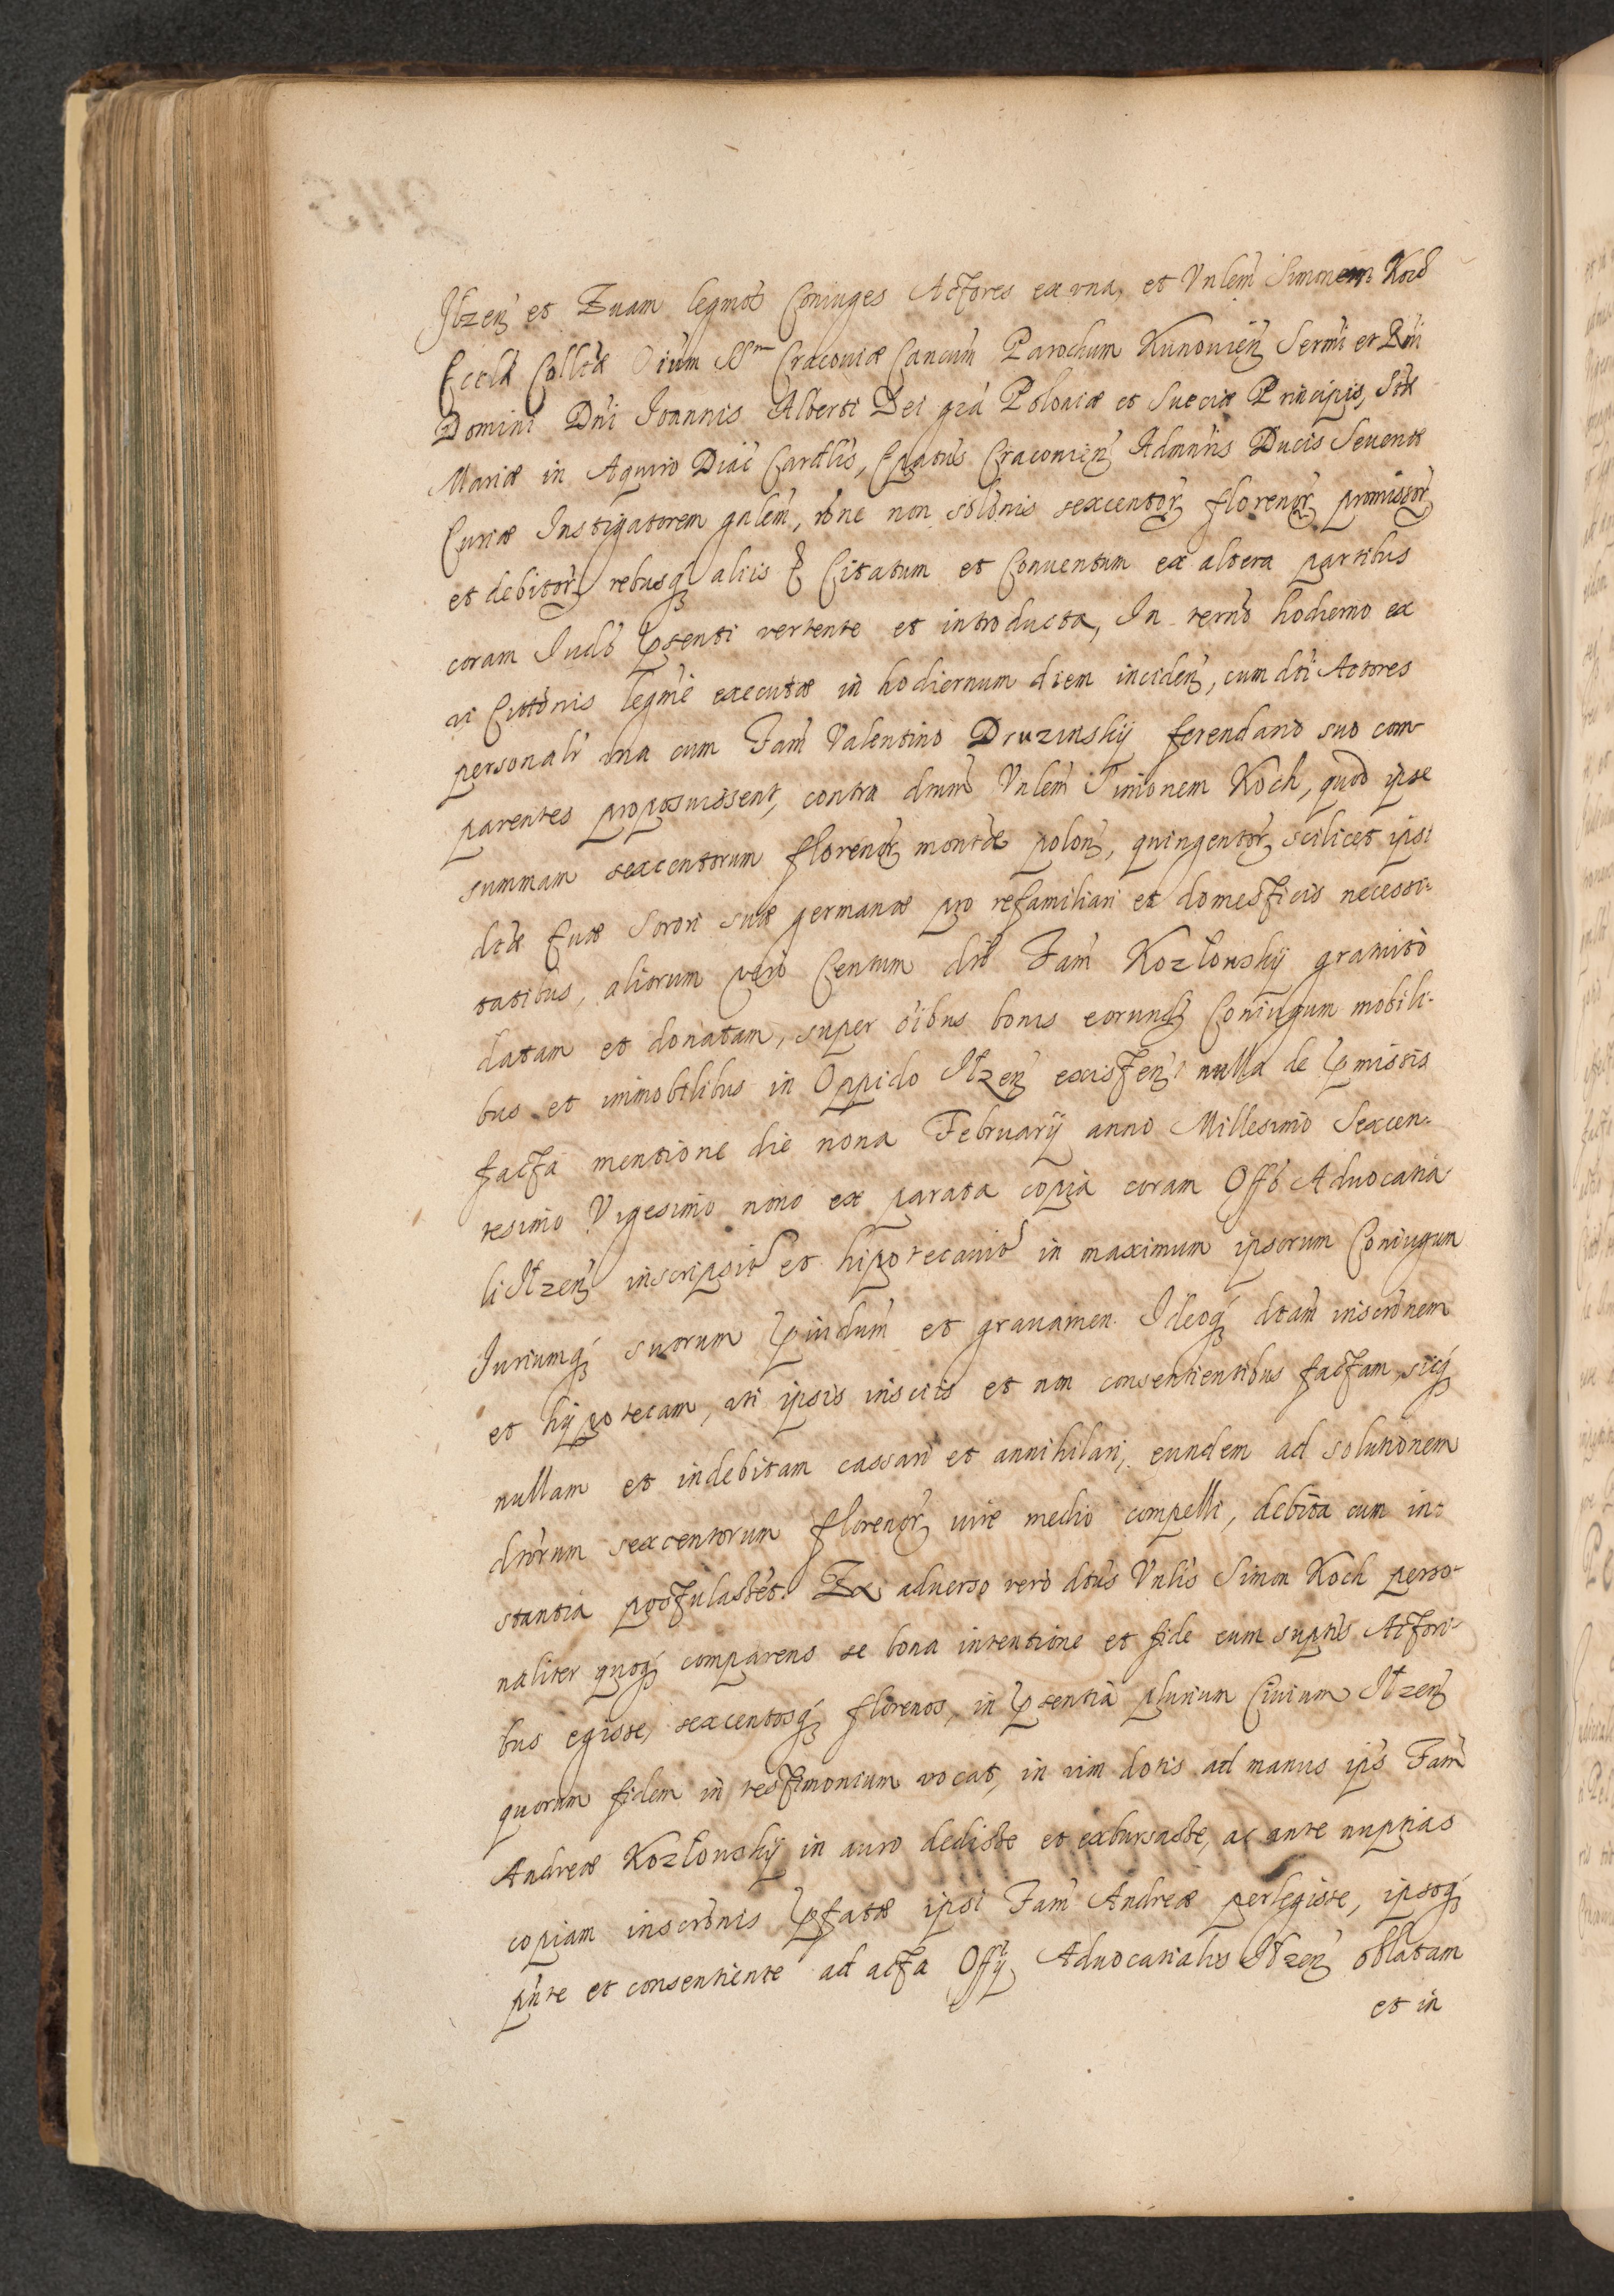 Jłzeń et Euam legmos Coniuges Actores ex una, et Vnlem Simonem Koch
Eccla Collta Oium SSrum Cracoviæ Cancum Parochum Kunouien Sermi et Rmi
Domini Dni Ioannis Alberti Dei gra Poloniæ et Sueciæ Principis, Stæ
Mariæ in Aquiro Diac Cardlis, Epatus Cracouien Admnris Ducis Seueriæ
Curiæ Instigatorem gnlem, rone non solonis sexcentor florenor promissor
et debitor rebusq aliis & Citatum et Conuentum ex altera partibus
coram Iudo psenti vertente et introducta, In termo hodierno ex
vi Cittonis legme executæ in hodiernum diem inciden, cum dti Actores
personalr una cum Fam Valentino Druzinskij ferendario suo com
parentes proposuissent, contra dnum Vnlem Simonem Koch, quod ipse
summam sexcentorum florenor montæ polon, quingentor scilicet ipsi
dtæ Euæ Sorori suæ germanæ pro refamiliari et domesticis necessi-
tatibus, aliorum vero Centum dto Fam Kozłowskij gratuito
datam et donatam, super oibus bonis eorund Coniugum mobili-
bus et immobilibus in Oppido Jłzen existen, nulla de pmissis
facta mentione die nona Februarij anno Millesimo Sexcen-
tesimo Vigesimo nono ex parata copia coram Offo Aduocatia
li Jłzen inscripsit et hipotecauit in maximum ipsorum Coniugum
Iuriumq suorum piudum et grauamen. Ideoq dtam inscronem
et hypotecam, uti ipsis insciis et non consentientibus factam, sicq
nullam et indebitam cassari et annihilari, eundem ad solutionem
dtorum sexcentorum florenor iure medio compelli, debita cum in-
stantia postulasset. Ex aduerso vero dtus Vnlis Simon Koch perso-
naliter quoq comparens se bona intentione et fide cum suptis Actori-
bus egisse, sexcentosq florenos, in psentia plurium Ciuium Jłzen
quorum fidem in testimonium vocat, in vim dotis ad manus ips Fam
Andreæ Kozłowskij in auro dedisse et exbursasse, ac ante nuptias
copiam inscronis pfatæ ipsi Fam Andreæ perlegisse, ipsoq
pnte et consentiente ad acta Offij Aduocatialis Jłzen oblatam
et in